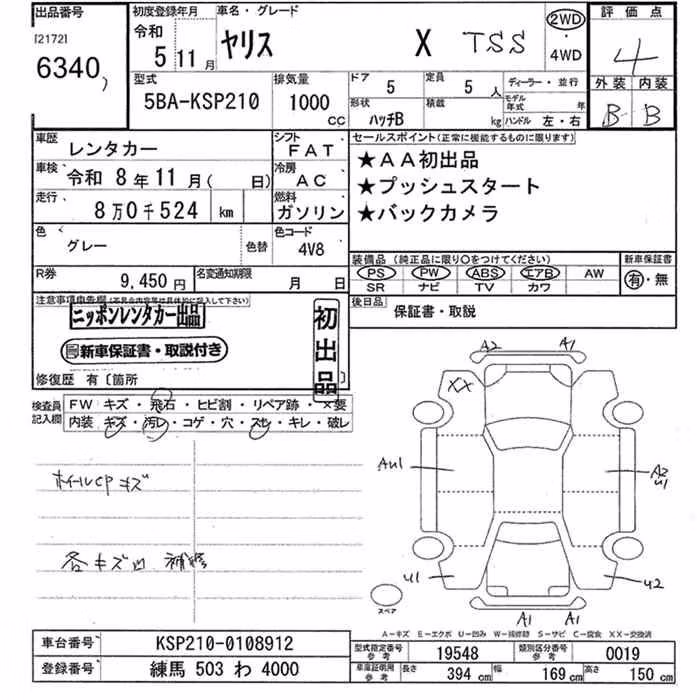 出品番号
[2172]
6340
初度登録年月
令和
5 11月
車名・グレード
ヤリス X TSS
2WD
・
4WD
評価点
4
外装 内装
B B
型式
5BA-KSP210
排気量
1000
CC
ドア
5
定員
5 人
形状
ハッチB
積載
kg
ディーラー・並行
モデル年式 年
ハンドル 左・右
車歴
レンタカー
車検
令和 8年11月( 日)
走行
8万0千524 km
シフト
FAT
冷房
AC
燃料
ガソリン
色
グレー
色替
色コード
4V8
R券
9,450円
名変通知期限
月 日
セールスポイント(正常に機能するものに限ります)
★AA初出品
★プッシュスタート
★バックカメラ
装備品(純正品に限り○をつけてください)
PS PW ABS エアB AW
SR ナビ TV カワ
新車保証書
有・無
後日品
保証書・取説
注意事項申告欄(不具合内容等は具体的に記入して下さい)
ニッポンレンタカー出品
新車保証書・取説付き
初出品
修復歴 有〔箇所
検査員記入欄
FW キズ・飛石・ヒビ割・リペア跡・×要
内装 キズ・汚レ・コゲ・穴・スレ・キレ・破レ
ホイールCPキズ
各キズ凹 補修
A2 A1
XX
AU1
A2
U1
U1
U2
A1 A1
スペア
A−キズ E−エクボ U−凹み W−補修跡 S−サビ C−腐食 XX−交換済
車台番号
KSP210-0108912
登録番号
練馬 503 わ 4000
型式指定番号
参考
19548
類別区分番号
参考
0019
車庫証明用
参考
長さ 394 cm 幅 169 cm 高さ 150 cm